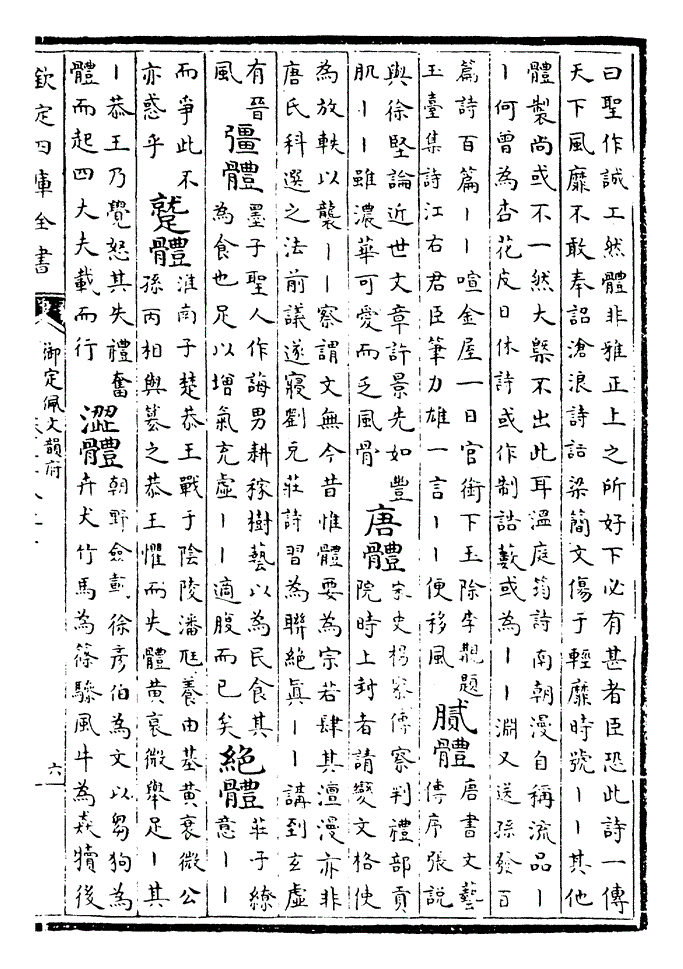 曰聖作誠工然體非雅正上之所好下必有甚者臣恐此詩一傳
天下風靡不敢奉詔滄浪詩話梁簡文傷于輕靡時號丨丨其他
體製尚或不一然大槩不出此耳溫庭筠詩南朝漫自稱流品丨
丨何曾為杏花皮日休詩或作制誥藪或為丨丨淵又送孫發百
篇詩百篇丨丨喧金屋一日官銜下玉除李覯題
玉臺集詩江右君臣筆力雄一言丨丨便移風
膩體
唐書文藝
傳序張說
與徐堅論近世文章許景先如豐
肌丨丨雖濃華可愛而乏風骨
唐體
宋史楊察傳察判禮部貢
院時上封者請變文格使
為放軼以襲丨丨察謂文無今昔惟體要為宗若肆其澶漫亦非
唐氏科選之法前議遂寢劉克莊詩習為聯絕真丨丨講到玄虛
有晉
風
彊體
墨子聖人作誨男耕稼樹藝以為民食其
為食也足以增氣充虛丨丨適腹而已矣
絕體
莊子繚
意丨丨
而爭此不
亦惑乎
蹵體
淮南子楚恭王戰于陰陵潘尫養由基黃衰微公
孫丙相與簒之恭王懼而失體黃衰微舉足丨其
丨恭王乃覺怒其失禮奮
體而起四大夫載而行
澀體
朝野僉載徐彥伯為文以芻狗為
卉犬竹馬為篠驂風牛為猋犢後
欽定四庫全書
御定佩文韻府
六